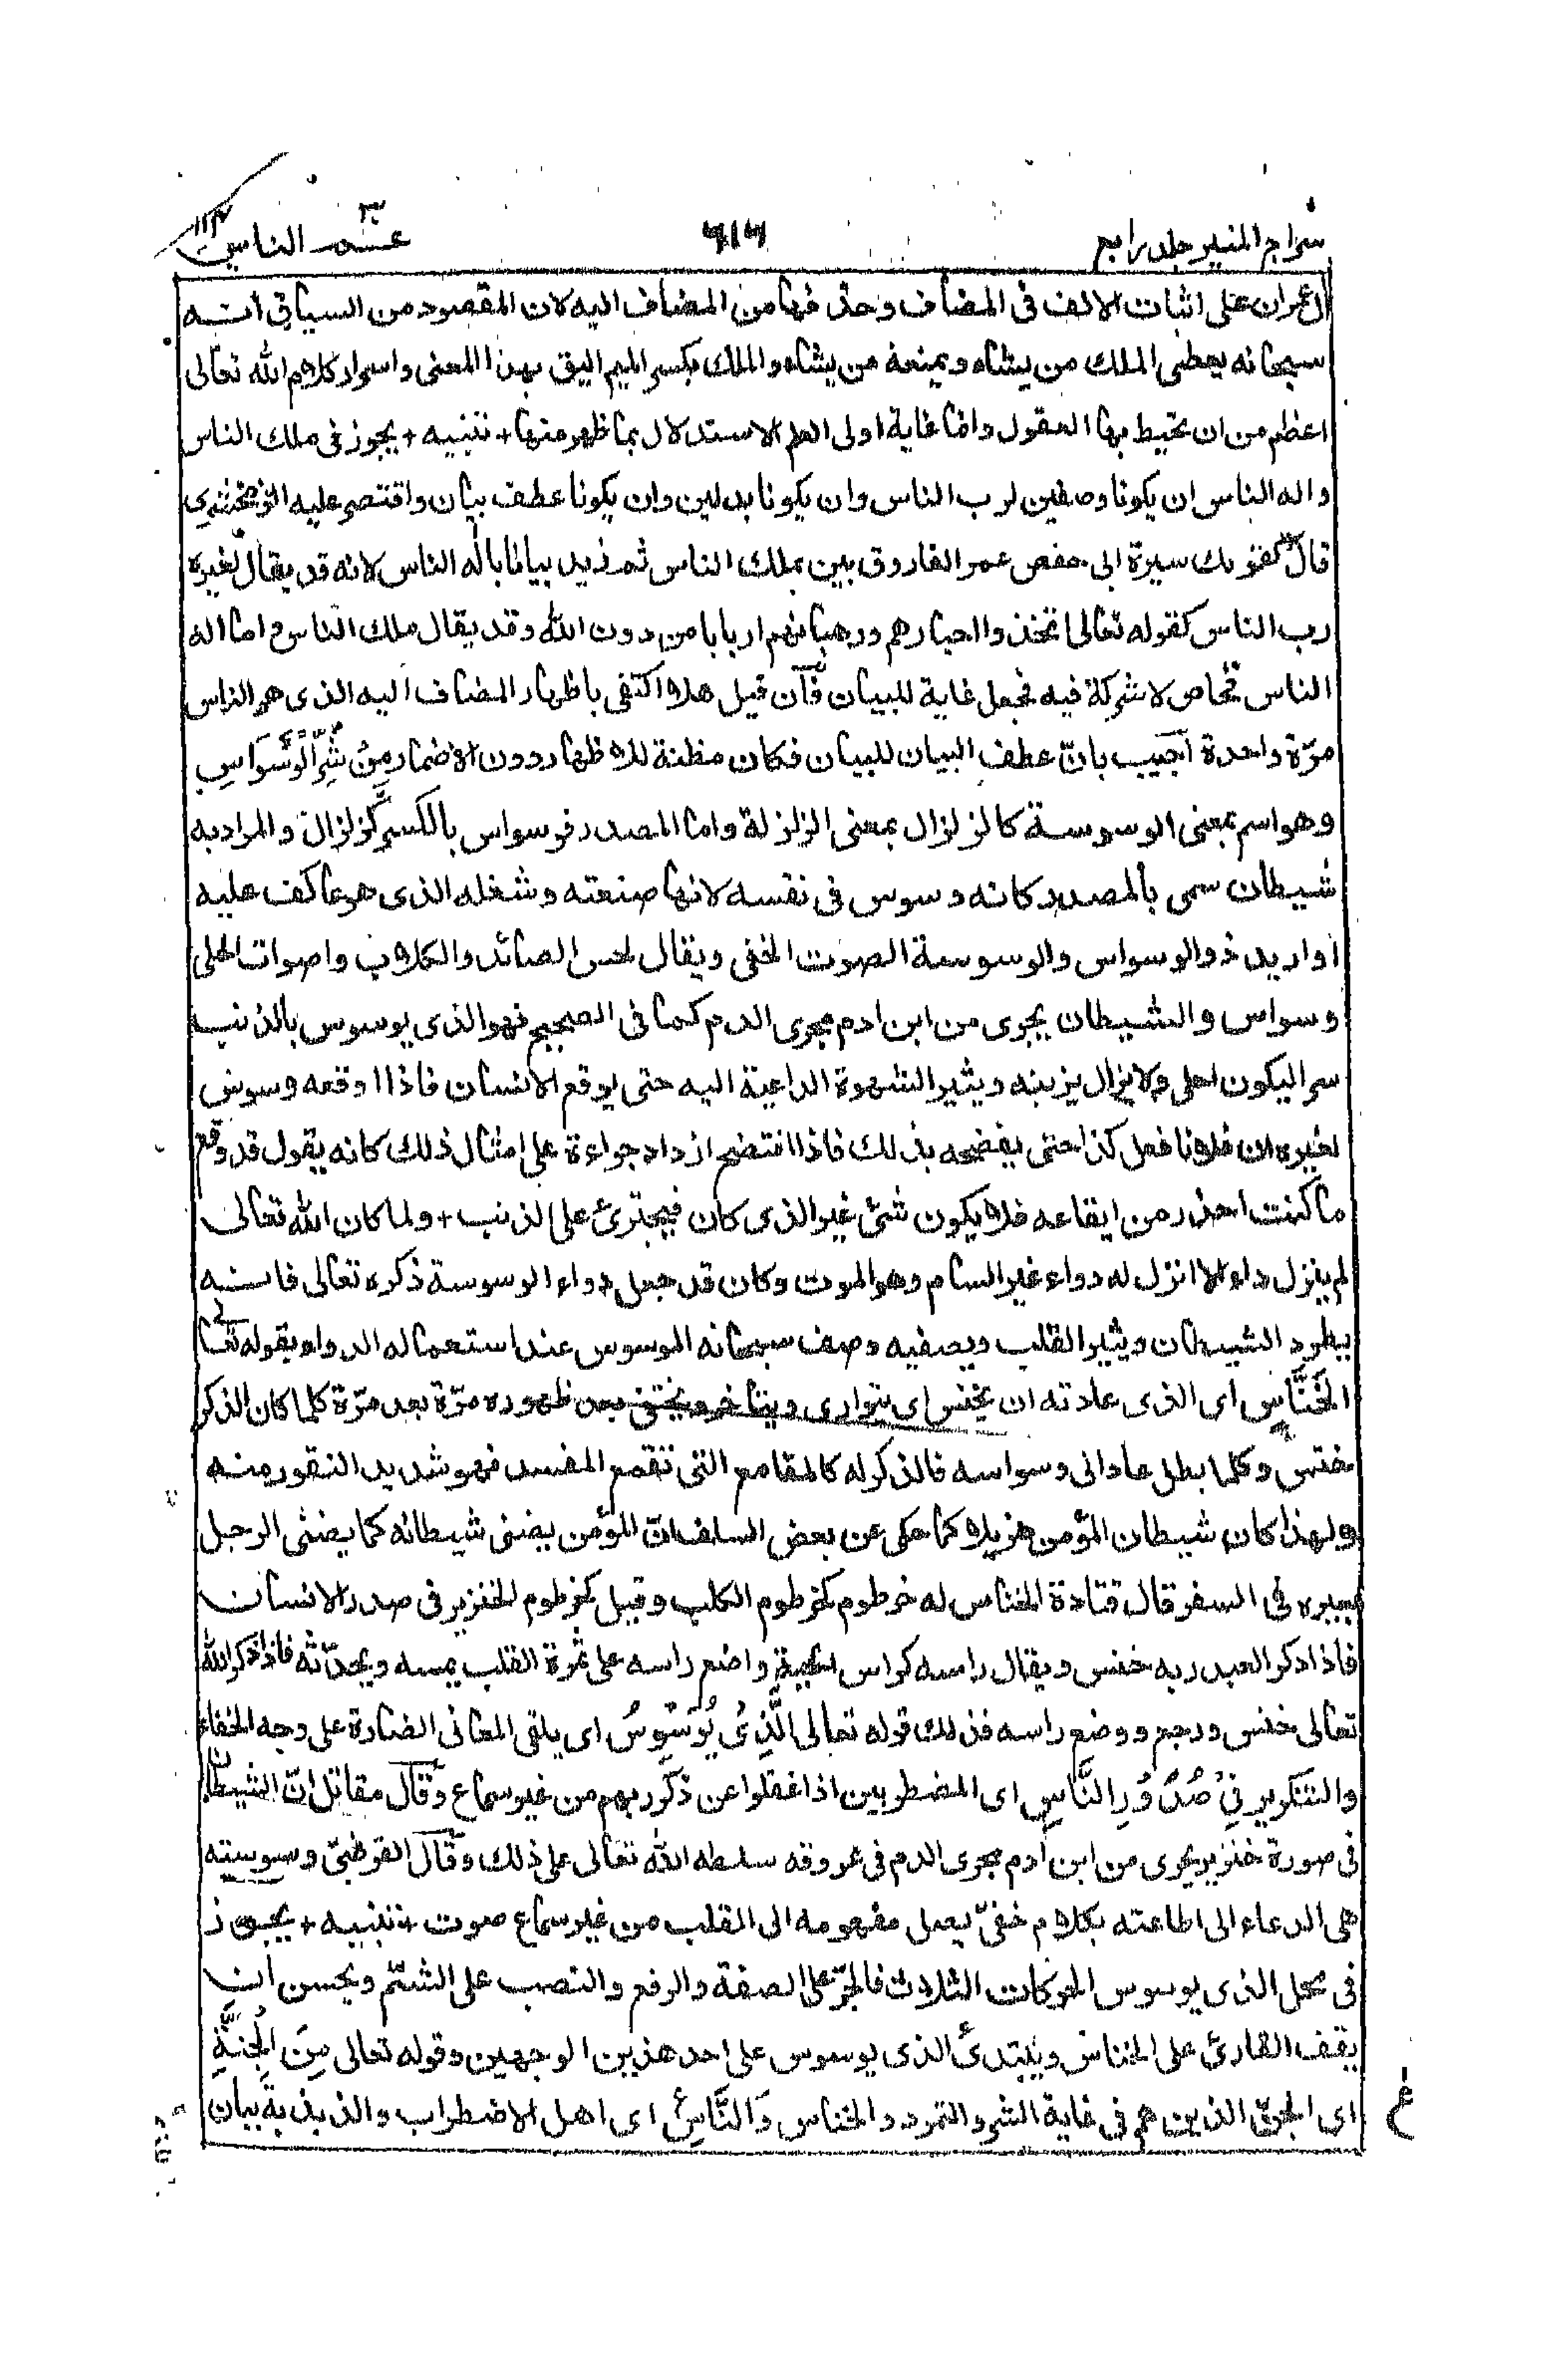 سراج المنير جلد رابع
٦١٦
عمّ ٣٠ الناس ١١٤
ال عمران على اثبات الالف فى المضاف وحذفها من المضاف اليه لان المقصود من السياق انه
سبحانه يعطى الملك من يشاء ويمنعه من يشاء والملك بكسر الميم اليق بهذا المعنى واسرار كلام الله تعالى
اعظم من ان تحيط بها العقول وانما غاية اولى العلم الاستدلال بما ظهر منها + تنبيه + يجوز فى ملك الناس
واله الناس ان يكونا وصفين لرب الناس وان يكونا بدلين وان يكونا عطف بيان واقتصر عليه الزمخشرى
قال كقولك سيرة ابى حفص عمر الفاروق بين بملك الناس ثم زيد بيانا باله الناس لانه قد يقال لغيره
رب الناس كقوله تعالى اتخذوا احبارهم ورهبانهم اربابا من دون الله وقد يقال ملك الناس واما اله
الناس فخاص لا شركة فيه فجعل غاية للبيان فان قيل هلا اكتفى باظهار المضاف اليه الذى هو الناس
مرّة واحدة اجيب بانّ عطف البيان للبيان فكان مظنة للاظهار دون الاضمار مِنْ شَرِّ الْوَسْوَاسِ
وهو اسم بمعنى الوسوسة كالزلزال بمعنى الزلزلة واما المصدر فوسواس بالكسر كزلزال والمراد به
شيطان سمى بالمصدر كانه وسوس فى نفسه لانها صنعته وشغله الذى هو عاكف عليه
او اريد ذو الوسواس والوسوسة الصوت الخفى ويقال لحس الصائد والكلاب واصوات الحلى
وسواس والشيطان يجرى من ابن ادم مجرى الدم كما فى الصحيح فهو الذى يوسوس بالذنب
سرا ليكون احلى ولا يزال يزينه ويثير الشهوة الداعية اليه حتى يوقع الانسان فاذا اوقعه وسوس
لغيره ان فلانا فعل كذا حتى يفضحه بذلك فاذا افتضح ازداد جراءة على امثال ذلك كانه يقول قد وقع
ما كنت احذر من ايقاعه فلا يكون شئ غير الذى كان فيجترئ على الذنب + ولما كان الله تعالى
لم ينزل داء الا انزل له دواء غير السام وهو الموت وكان قد جعل دواء الوسوسة ذكره تعالى فانه
يطرد الشيطان وينير القلب ويصفيه وصف سبحانه الموسوس عند استعماله الدواء بقوله تعالى
الْخَنَّاسِ اى الذى عادته ان يخنس اى يتوارى ويتاخر ويختفى بعد ظهوره مرّة بعد مرّة كلما كان الذكر
خنس وكلما بطل عاد الى وسواسه فالذكر له كالمقامع التى تقمع المفسد فهو شديد النفور منه
ولهذا كان شيطان المؤمن هزيلا كما حكى عن بعض السلف انّ المؤمن يضنى شيطانه كما يضنى الرجل
بعيره فى السفر قال قتادة الخناس له خرطوم كخرطوم الكلب وقيل كخرطوم الخنزير فى صدر الانسان
فاذا ذكر العبد ربه خنس ويقال راسه كراس الحية واضع راسه على ثمرة القلب يمسه ويحدّثه فاذا ذكر الله
تعالى خنس ورجع ووضع راسه فذلك قوله تعالى الَّذِىْ يُوَسْوِسُ اى يلقى المعانى الضارة على وجه الخفاء
والتكرير فِىْ صُدُوْرِ النَّاسِ اى المضطربين اذا غفلوا عن ذكر ربهم من غير سماع وقال مقاتل انّ الشيطان
فى صورة خنزير يجرى من ابن ادم مجرى الدم فى عروقه سلطه الله تعالى على ذلك وقال القرطبىّ وسوسته
هى الدعاء الى طاعته بكلام خفىّ يصل مفهومه الى القلب من غير سماع صوت + تنبيه + يجوز
فى محل الذى يوسوس الحركات الثلاث فالجرّ على الصفة والرفع والنصب على الشتم ويحسن ان
يقف القارئ على الخناس ويبتدئ الذى يوسوس على احد هذين الوجهين وقوله تعالى مِنَ الْجِنَّةِ
اى الجنّ الذين هم فى غاية الشر والتمرد والخناس وَالنَّاسِ اى اهل الاضطراب والذبذبة بيان